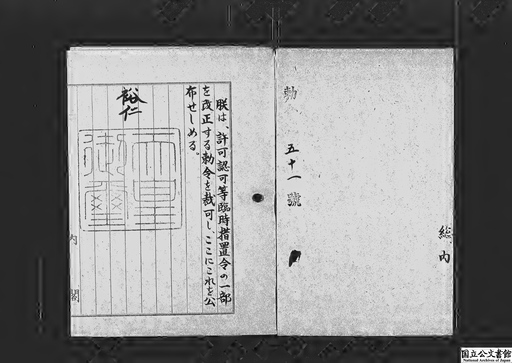 総、内
勅
五十一號
朕は、許可認可等臨時措置令の一部
を改正する勅令を裁可し、ここにこれを公
布せしめる。
裕仁
天皇御璽
内閣
国立公文書館
National Archives of Japan